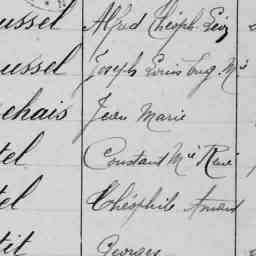 ussel Alfred Théoph. Léon
ussel Joseph Louis Eug. Mie
chais Jean Marie
tel Constant Mie René
tel Théophile Amand
tit Georges